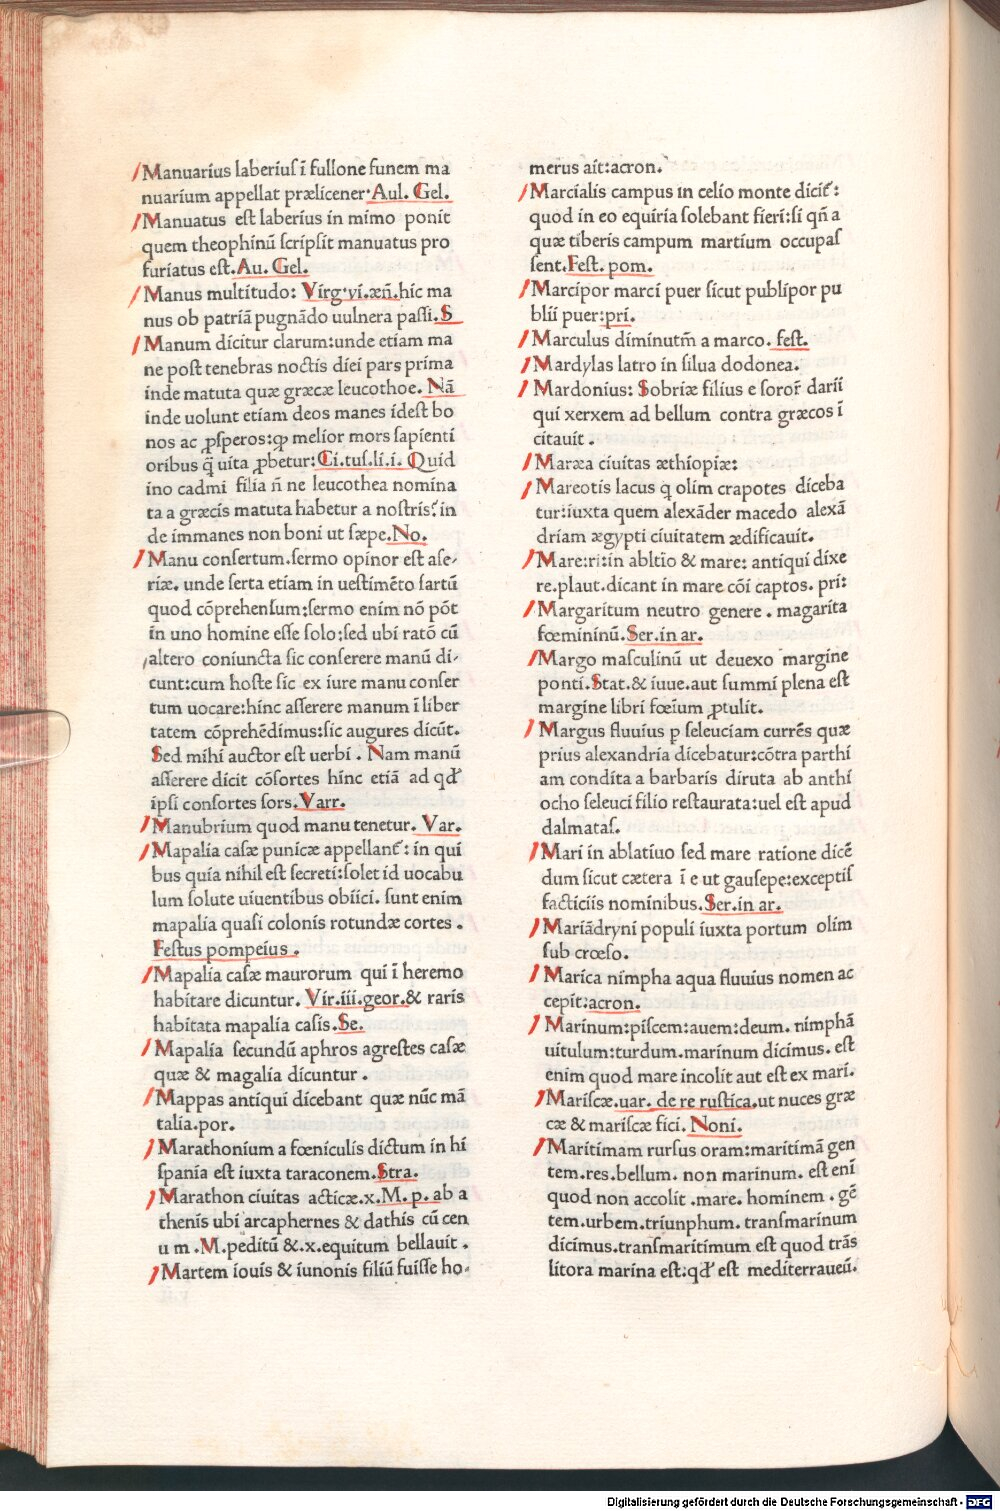 Manuarius laberiuſ ī fullone funem ma
nuarium appellat prælicener·Aul. Gel.
Manuatus est laberius in mimo ponit
quem theophinū ſcripſit manuatus pro
furiatus est.Au. Gel.
Manus multitudo: Virg·vi.æn̄.hic ma
nus ob patriā pugnādo uulnera paſſi.S
Manum dicitur clarum:unde etiam ma
ne poſt tenebras noctis diei pars prima
inde matuta quæ græcæ leucothoe. Nā
inde uolunt etiam deos manes ideſt bo
nos ac ꝓſperos:ꝙ melior mors ſapienti
oribus q̄ uita ꝓbetur:Ci.tuſ.li.i. Quid
ino cadmi filia n̄ ne leucothea nomina
ta a græcis matuta habetur a noſtris: in
de immanes non boni ut ſæpe.No.
Manu conſertum.ſermo opinor est aſe-
riæ. unde ſerta etiam in ueſtimēto ſartū
quod cōprehenſum:ſermo enim nō pōt
īn uno homine eſſe ſolo:ſed ubi ratō cū
altero coniuncta ſic conſerere manū di-
cunt:cum hoſte ſic ex iure manu conſer
tum uocare:hinc aſſerere manum ī liber
tatem cōprehēdimus:ſic augures dicūt.
Sed mihi auctor est uerbi . Nam manū
aſſerere dicit cōſortes hinc etiā ad qđ
ipſi conſortes ſors.Varr.
Manubrium quod manu tenetur. Var.
Mapalia caſæ punicæ appellant̄: in qui
bus quia nihil est ſecreti:ſolet id uocabu
lum ſolute uiuentibus obiici. ſunt enim
mapalia quaſi colonis rotundæ cortes .
Feſtus pompeius .
Mapalia caſæ maurorum qui ī heremo
habitare dicuntur. Vir.iii.geor.& raris
habitata mapalia caſis.Se.
Mapalia ſecundū aphros agreſtes caſæ
quæ & magalia dicuntur .
Mappas antiqui dicebant quæ nūc mā
talia.por.
Marathonium a fœniculis dictum in hi
ſpania est iuxta taraconem.Stra.
Marathon ciuitas acticæ.x.M. p. ab a
thenis ubi arcaphernes & dathis cū cen
u m .M.peditū &.x.equitum bellauit .
Martem iouis & iunonis filiū fuiſſe ho-
merus ait:acron.
Marcialis campus in celio monte dicit̄:
quod in eo equiria ſolebant fieri:ſi qn̄ a
quæ tiberis campum martium occupaſ
ſent.Feſt. pom.
Marcipor marci puer ſicut publipor pu
blii puer:pri.
Marculus diminutm̄ a marco. feſt.
Mardylas latro in ſilua dodonea.
Mardonius: Sobriæ filius e ſoror̄ darii
qui xerxem ad bellum contra græcos ī
citauit .
Maræa ciuitas æthiopiæ:
Mareotis lacus q olim crapotes diceba
tur:iuxta quem alexāder macedo alexā
driam ægypti ciuitatem ædificauit.
Mare:ri:in abltīo & mare: antiqui dixe
re.plaut.dicant in mare cōi captos. pri:
Margaritum neutro genere . magarita
fœmininū.Ser.in ar.
Margo maſculinū ut deuexo margine
ponti.Stat.& iuue.aut ſummi plena est
margine libri fœīum ꝓtulit.
Margus fluuius ꝑ ſeleuciam currēs quæ
prius alexandria dicebatur:cōtra parthi
am condita a barbaris diruta ab anthi
ocho ſeleuci filio reſtaurata:uel est apud
dalmataſ.
Mari in ablatiuo ſed mare ratione dicē
dum ſicut cætera ī e ut gauſepe:exceptiſ
facticiis nominibus.Ser.in ar.
Mariādryni populi iuxta portum olim
ſub crœſo.
Marica nimpha aqua fluuius nomen ac
cepit:acron.
Marinum:piſcem:auem:deum. nimphā
uitulum:turdum.marinum dicimus. est
enim quod mare incolit aut est ex mari.
Mariſcæ.uar. de re ruſtica.ut nuces græ
cæ & mariſcæ fici. Noni.
Maritimam rurſus oram:maritimā gen
tem.res.bellum. non marinum. est enī
quod non accolit .mare. hominem . gē
tem.urbem.triunphum. tranſmarinum
dicimus.tranſmaritimum est quod trāſ
litora marina est:qđ est mediterraueū.
Digitalisierung gefördert durch die Deutsche Forschungsgemeinschaft - DFG